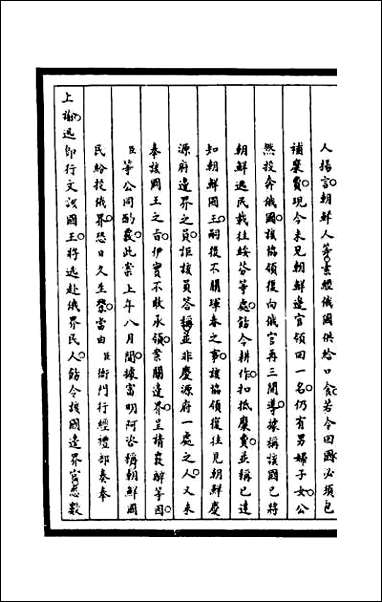 人揚言朝鮮人等業經俄國供給口食若令回國必須包
補糜費現今未見朝鮮邊官領回一名仍有男婦子女公
然投奔俄國該協領復向俄官再三開導據稱該國已將
朝鮮逃民裁往綏芬等處飭令耕作扣抵糜費並稱已達
知朝鮮國王嗣後不關琿春之事該協領復往見朝鮮慶
源府邊界之員詎該員答稱並非慶源府一處之人又未
奉該國王之旨伊實不敢承領業關邊界呈請裁辭等因
臣等公同酌覈此案上年八月間據富明阿咨稱朝鮮國
民紛投俄界恐日久生釁當由臣衙門行經禮部奏奉
上諭迅即行文該國王將逃赴俄界民人飭令該國邊界官悉數